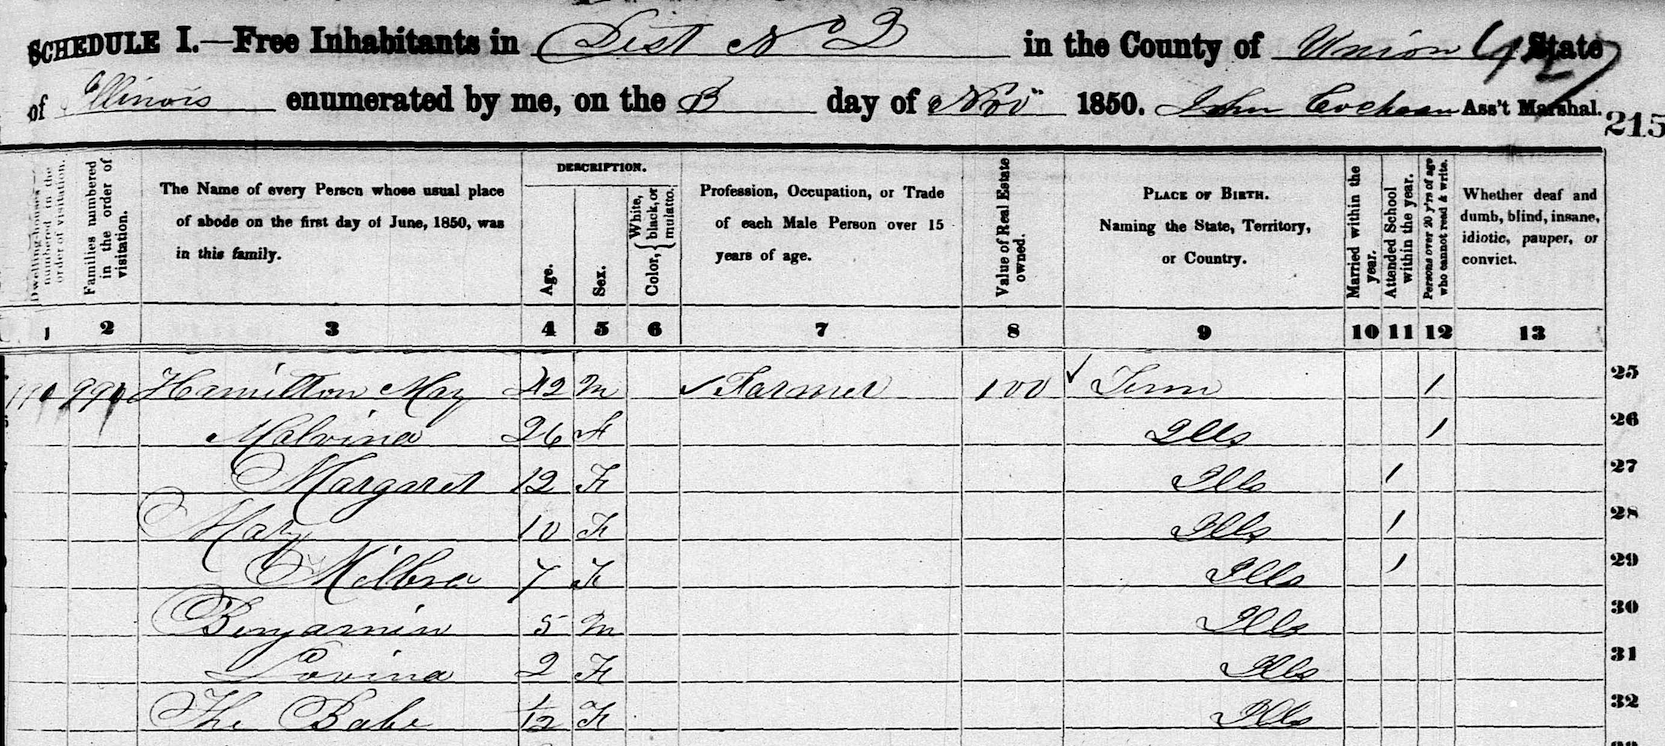 SCHEDULE I.—Free Inhabitants in Dist No 2 in the County of Union State
of Illinois enumerated by me, on the day of Nov 1850. John Cochran Ass't Marshal.
215
Dwelling-houses numbered in the order of visitation.
Families numbered in the order of visitation.
The Name of every Person whose usual place of abode on the first day of June, 1850, was in this family.
DESCRIPTION.
Age.
Sex.
Color, { White, black, or mulatto.
Profession, Occupation, or Trade of each Male Person over 15 years of age.
Value of Real Estate owned.
PLACE OF BIRTH. Naming the State, Territory, or Country.
Married within the year.
Attended School within the year.
Persons over 20 y'rs of age who cannot read & write.
Whether deaf and dumb, blind, insane, idiotic, pauper, or convict.
1 2 3 4 5 6 7 8 9 10 11 12 13
Hamilton May 42 M ✓ Farmer 100 ✓ Tenn / 25
Malvina 26 F Ills / 26
Margaret 12 F Ills / 27
Mary 10 F Ills / 28
Milbra 7 F Ills / 29
Benjamin 5 M Ills 30
Lovina 2 F Ills 31
The Babe 1/12 F Ills 32